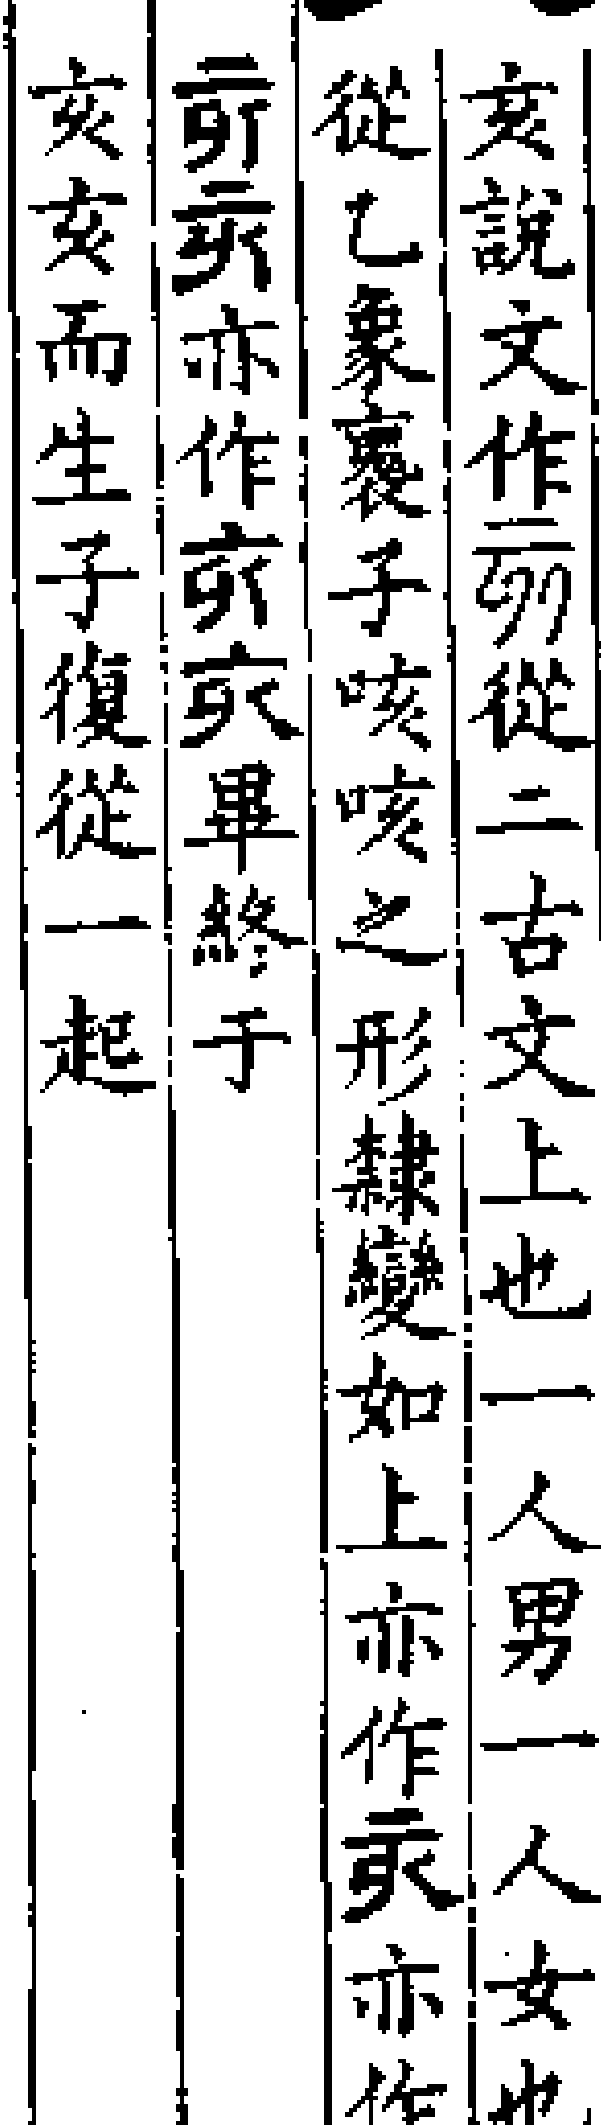 亥說文作從二古文上也一人男一人女也
從乙象褱子咳咳之形隸變如上亦作亦作
亦作畢終于
亥亥而生子復從一起